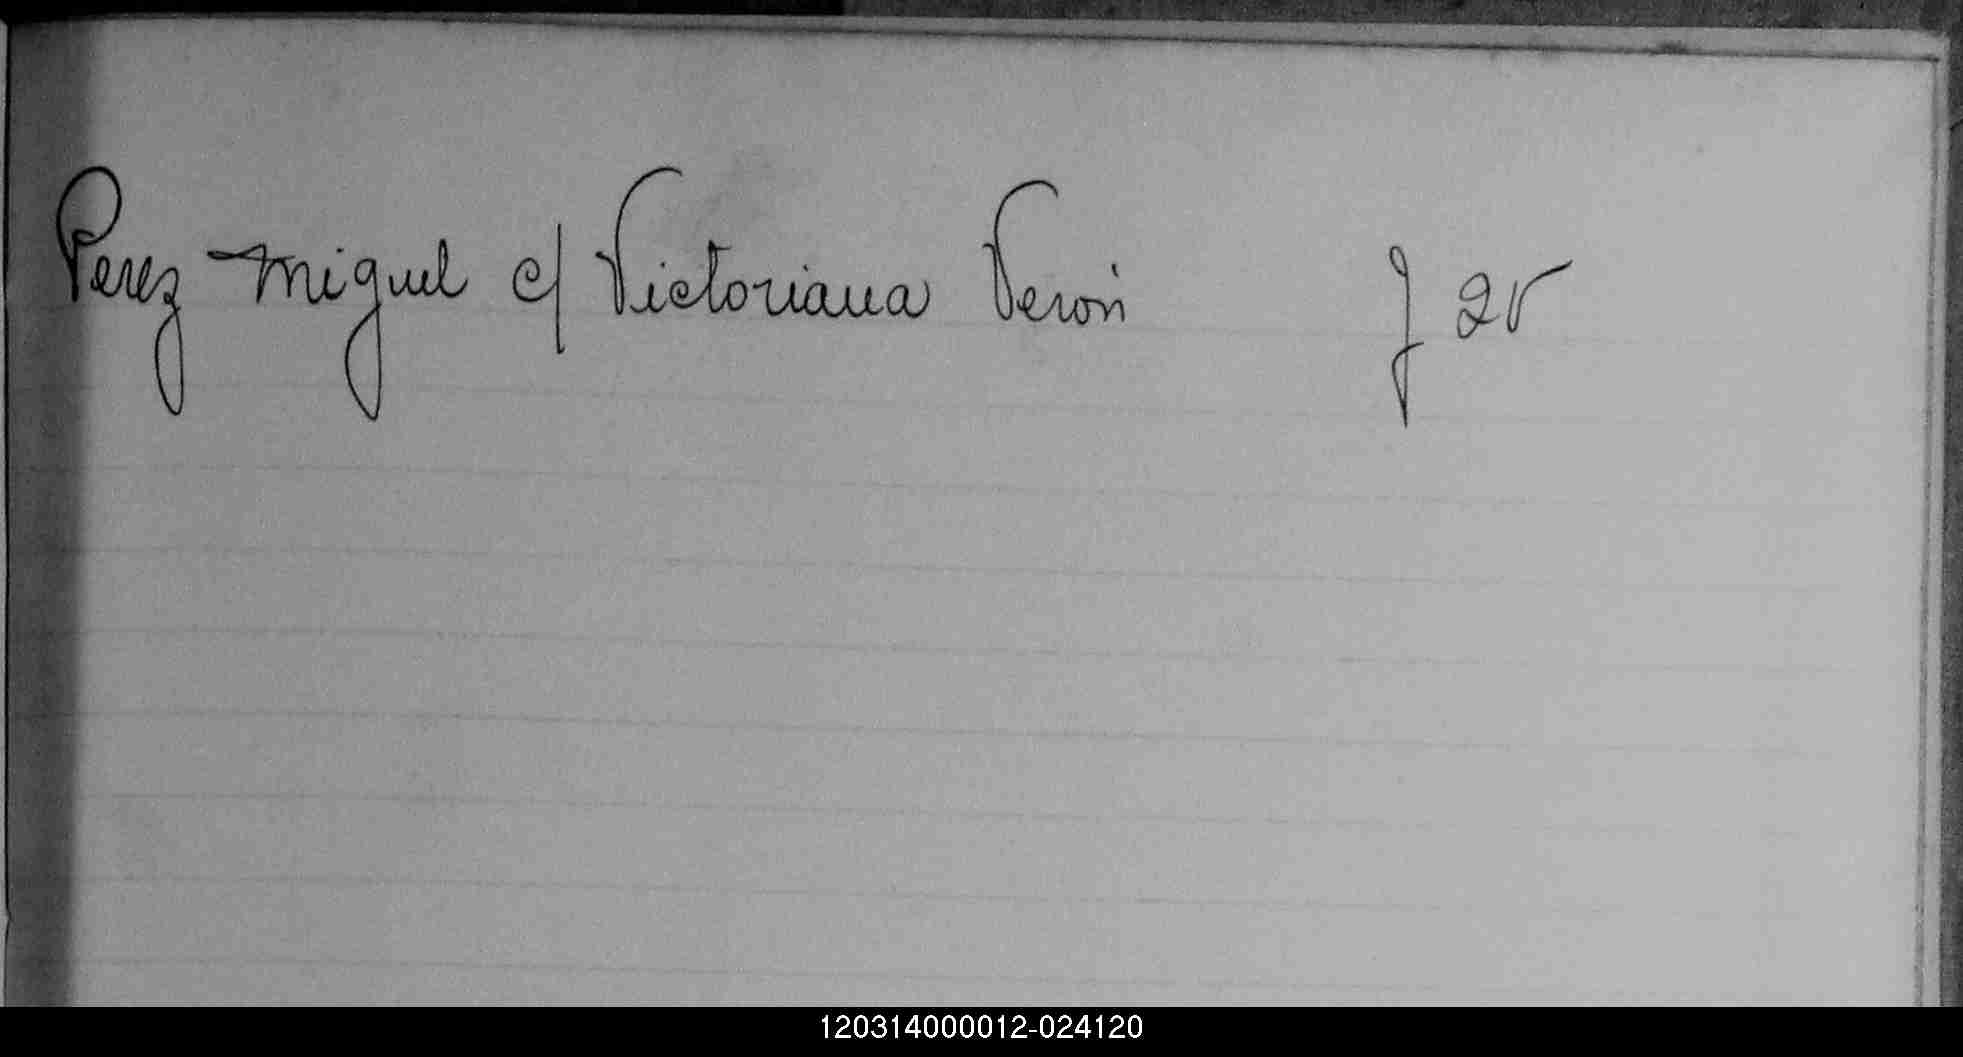 Perez Miguel c/ Victoriana Verón f 25
120314000012-024120